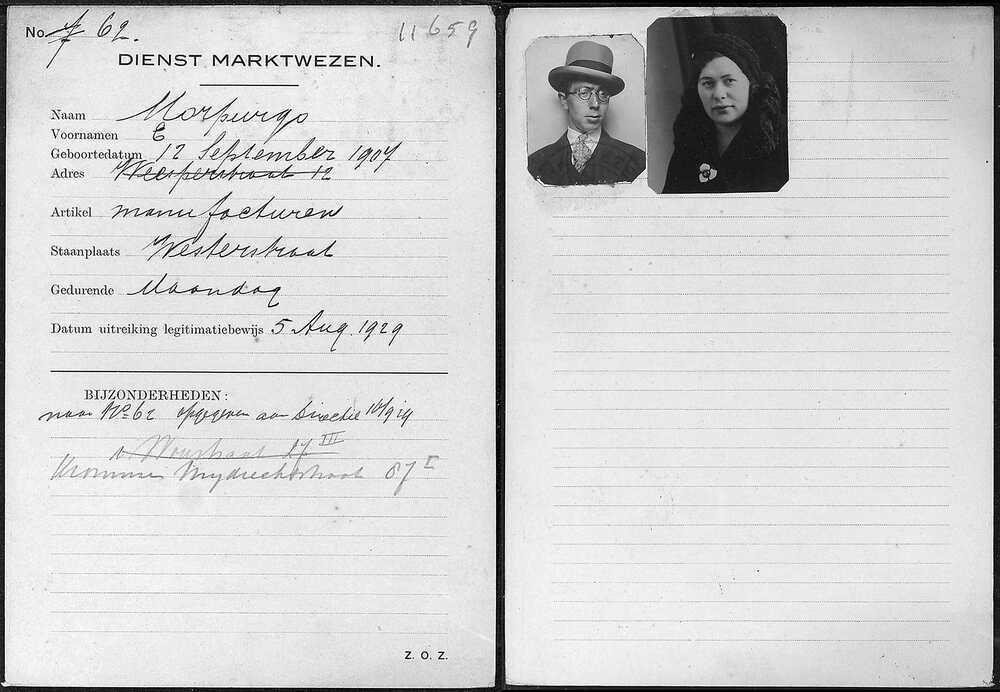 No. 7 62. 11659
DIENST MARKTWEZEN.
Naam Morpurgo
Voornamen E
Geboortedatum 12 September 1907
Adres Weesperstraat 12
Artikel manufacturen
Staanplaats Westerstraat
Gedurende Maandag
Datum uitreiking legitimatiebewijs 5 Aug. 1929
BIJZONDERHEDEN:
naar No 62 opgegeven aan Directie
27 III
Kromme Mydrechtstraat 87 I
Z. O. Z.